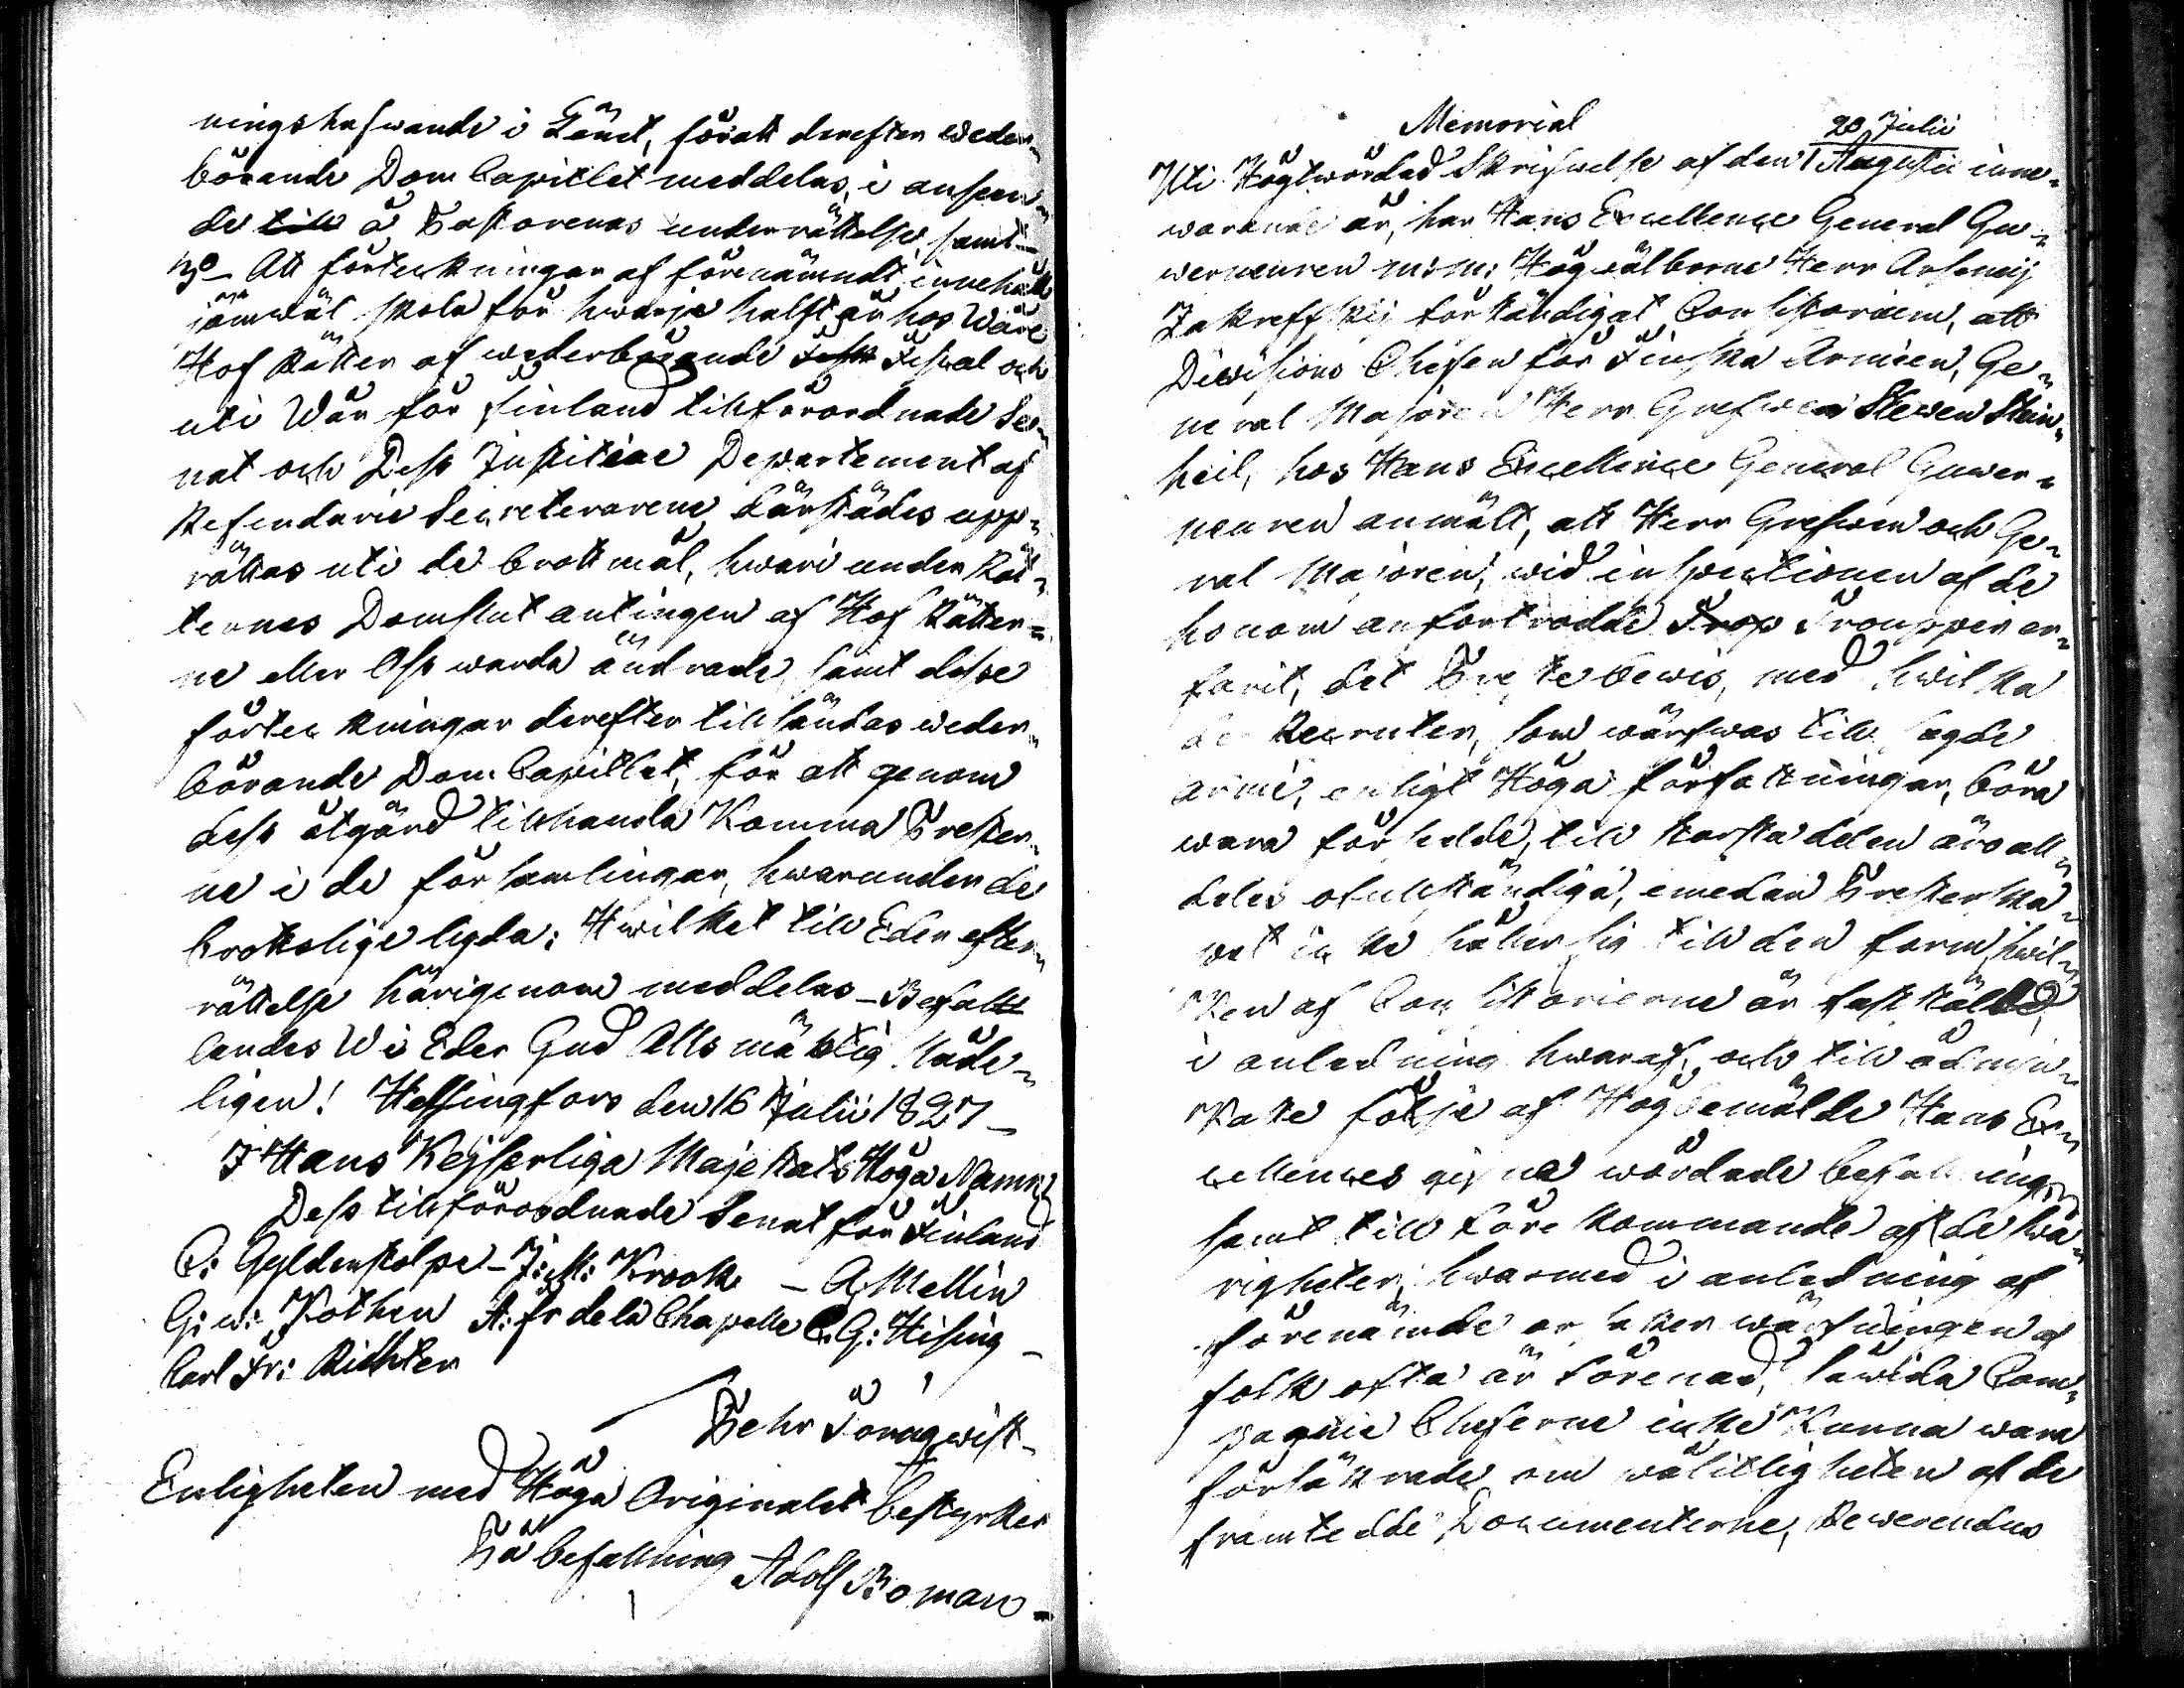 ningshafwande i Länet, föratt derefter weder=
börande Dom Capitlet meddelas, i anseen=
de till å Pastorernas underrättelse, samt
3o- Att förteckningar af förenämndt innehåll
jämwäl skola för hwarje halft år hos Wåre
Hof Rätter af wederbörande Fisk Fiscal och
uti Wår för Finland tillförordnade Se=
nat och Dess Justitiae Departement af
Referendarie Secreterarene därstädes upp=
rättas uti de brottmål, hwari under Rät=
ternes Domslut antingen af Hof Rätter=
ne eller Oss warda ändrade, samt desse
förteckningar derefter tillsändas weder=
börande Dom Capitlet, för att genom
dess åtgärd tillhanda komma Prester=
ne i de församlingar, hwarunder de
brottslige lyda; Hwilket till Eder efter=
rättelse härigenom meddelas - Befal
landes Wi Eder Gud Alls mäktig Nåde=
ligen! Helsingfors den 16 Julii 1827 -
I Hans Kejserliga Majestäts Höga Namn
Dess tillförordnade Senat för Finland
C: Gyldenstolpe - J: M: Krook - A Mellin
G: w: Kothen A: fr de la Chapelle C. G: Hising -
Carl Fr: Richter
Pehr Tornqwist -
Enligheten med Höga Originalet bestyrker
På befallning Adolf Boman -
Memorial
20 Julii
Uti Högtwördad Skrifwelse af den 1 Augustii inne=
warande år, har Hans Excellence General Gu=
werneuren m: m: Högwälborne Herr Arsenij
Zakreffskij förständigat Consistorium, att
Divisions Chefen för Finska Armeen, Ge=
neral Majoren Herr Grefwen Stewen Stein=
heil, hos Hans Excellence General Guwer=
neuren anmält, att Herr Grefwen och Ge=
ral Majoren, wid inspectionen af de
honom anfortrodde Trop Trouppen er=
farit, det Preste bewis, med hwilka
de Recruter, som wärfwas till sagde
armé, enligt Höga författningar, böra
wara försedde, till största delen äro all=
deles ofullständiga, emedan Presterska=
pet icke håller sig till den form, hwil=
ken af Consistorierne är faststäld,
i anledning hwaraf, och till ödmju=
kaste följe af Högbemälde Hans Ex=
cellences gifne wördade befallning,
samt till förekommande af de swå=
righeter, hwarmed i anledning af
förenämde orsaker wärfningen af
folk ofta är förenad, såwida Com=
pagnie Cheferne icke kunna wara
försäkrade om wälitligheten af de
framtedde Documenterne, Rewerendus